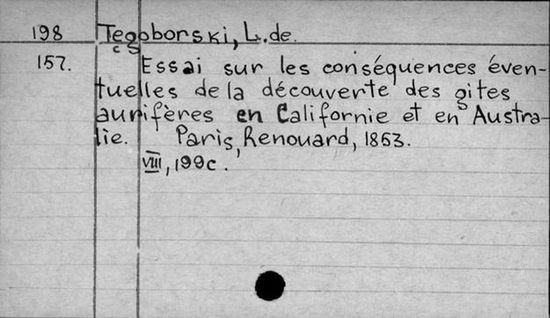 198 Tegoborski, L. de.
cs
157. Essai sur les conséquences éven-
tuelles de la découverte des gites
aurifères en Californie et en Austra-
lie. Paris, Renouard, 1853.
VIII, 199c.